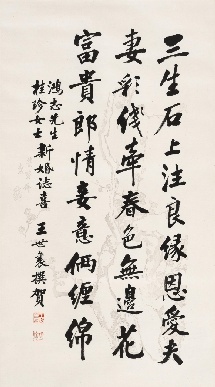 三生石上注良缘恩愛夫
妻彩綫牽春色無邊花
富貴郎情妾意倆纏綿
鴻志先生
桂珍女士新婚誌喜
王世襄撰賀